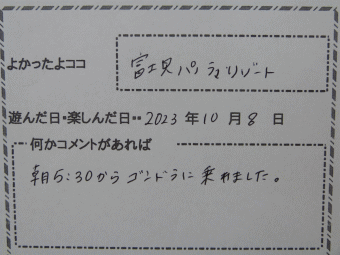 よかったよココ
富士見パノラマリゾート
遊んだ日・楽しんだ日・・2023年10月8日
何かコメントがあれば
朝5:30からゴンドラに乗れました。